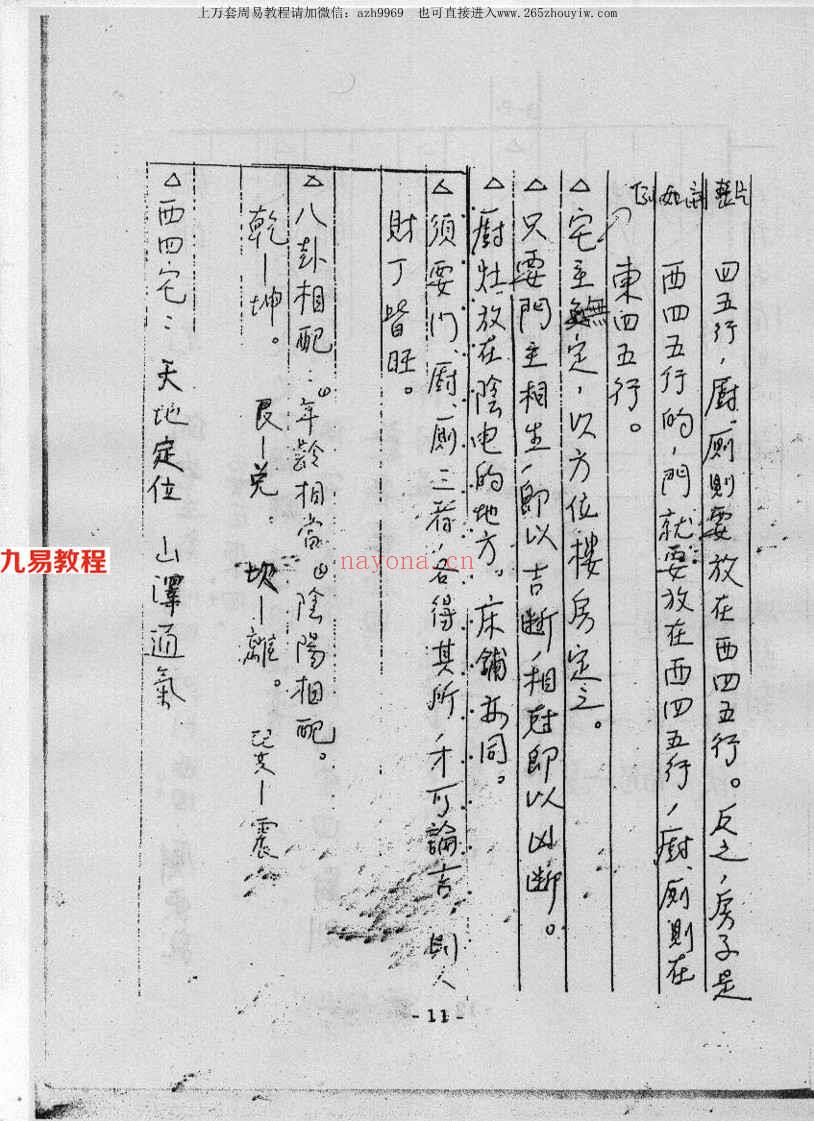 上万套周易教程请加微信：azh9969　也可直接进入www.265zhouyiw.com
四五行，廚、厠則要放在西四五行。反之，房子是
西四五行的，門就要放在西四五行，廚、厠則在
東四五行。
△宅主無定，以方位樓房定之。
△只要門主相生，即以吉斷，相尅即以凶斷。
△廚灶放在陰电的地方。床鋪亦同。
△須要门、廚、厠三者，各得其所，才可論吉，則人
財丁皆旺。
△八卦相配：年齡相當 陰陽相配。
乾－坤。 艮－兑。 坎－離。 巽－震
△西四宅： 天地定位 山澤通氣
九易教程
nayona.cn
- 11 -